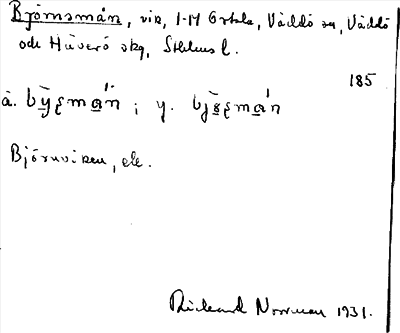 Björnsmån, vik, 1-14 Ortala, Väddö sn, Väddö
och Häverö skg, Sthlms l.
185
a. bȳɛmạ́n ; y. bjɛmạ́n
Björnviken, ek.
Rickard Norrman 1931.